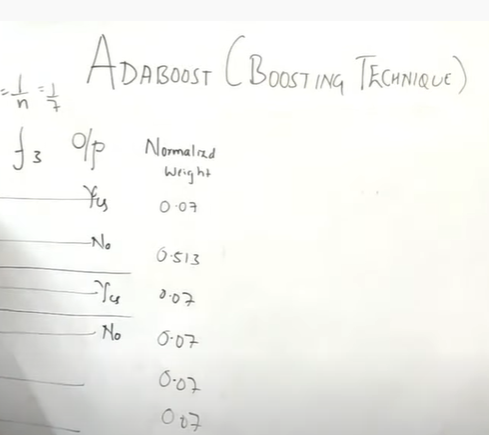 ADABOOST (BOOSTING TECHNIQUE)
= 1/n = 1/7
f3 O/p Normalized
Weight
Yes 0.07
No 0.513
Yes 0.07
No 0.07
0.07
0.07